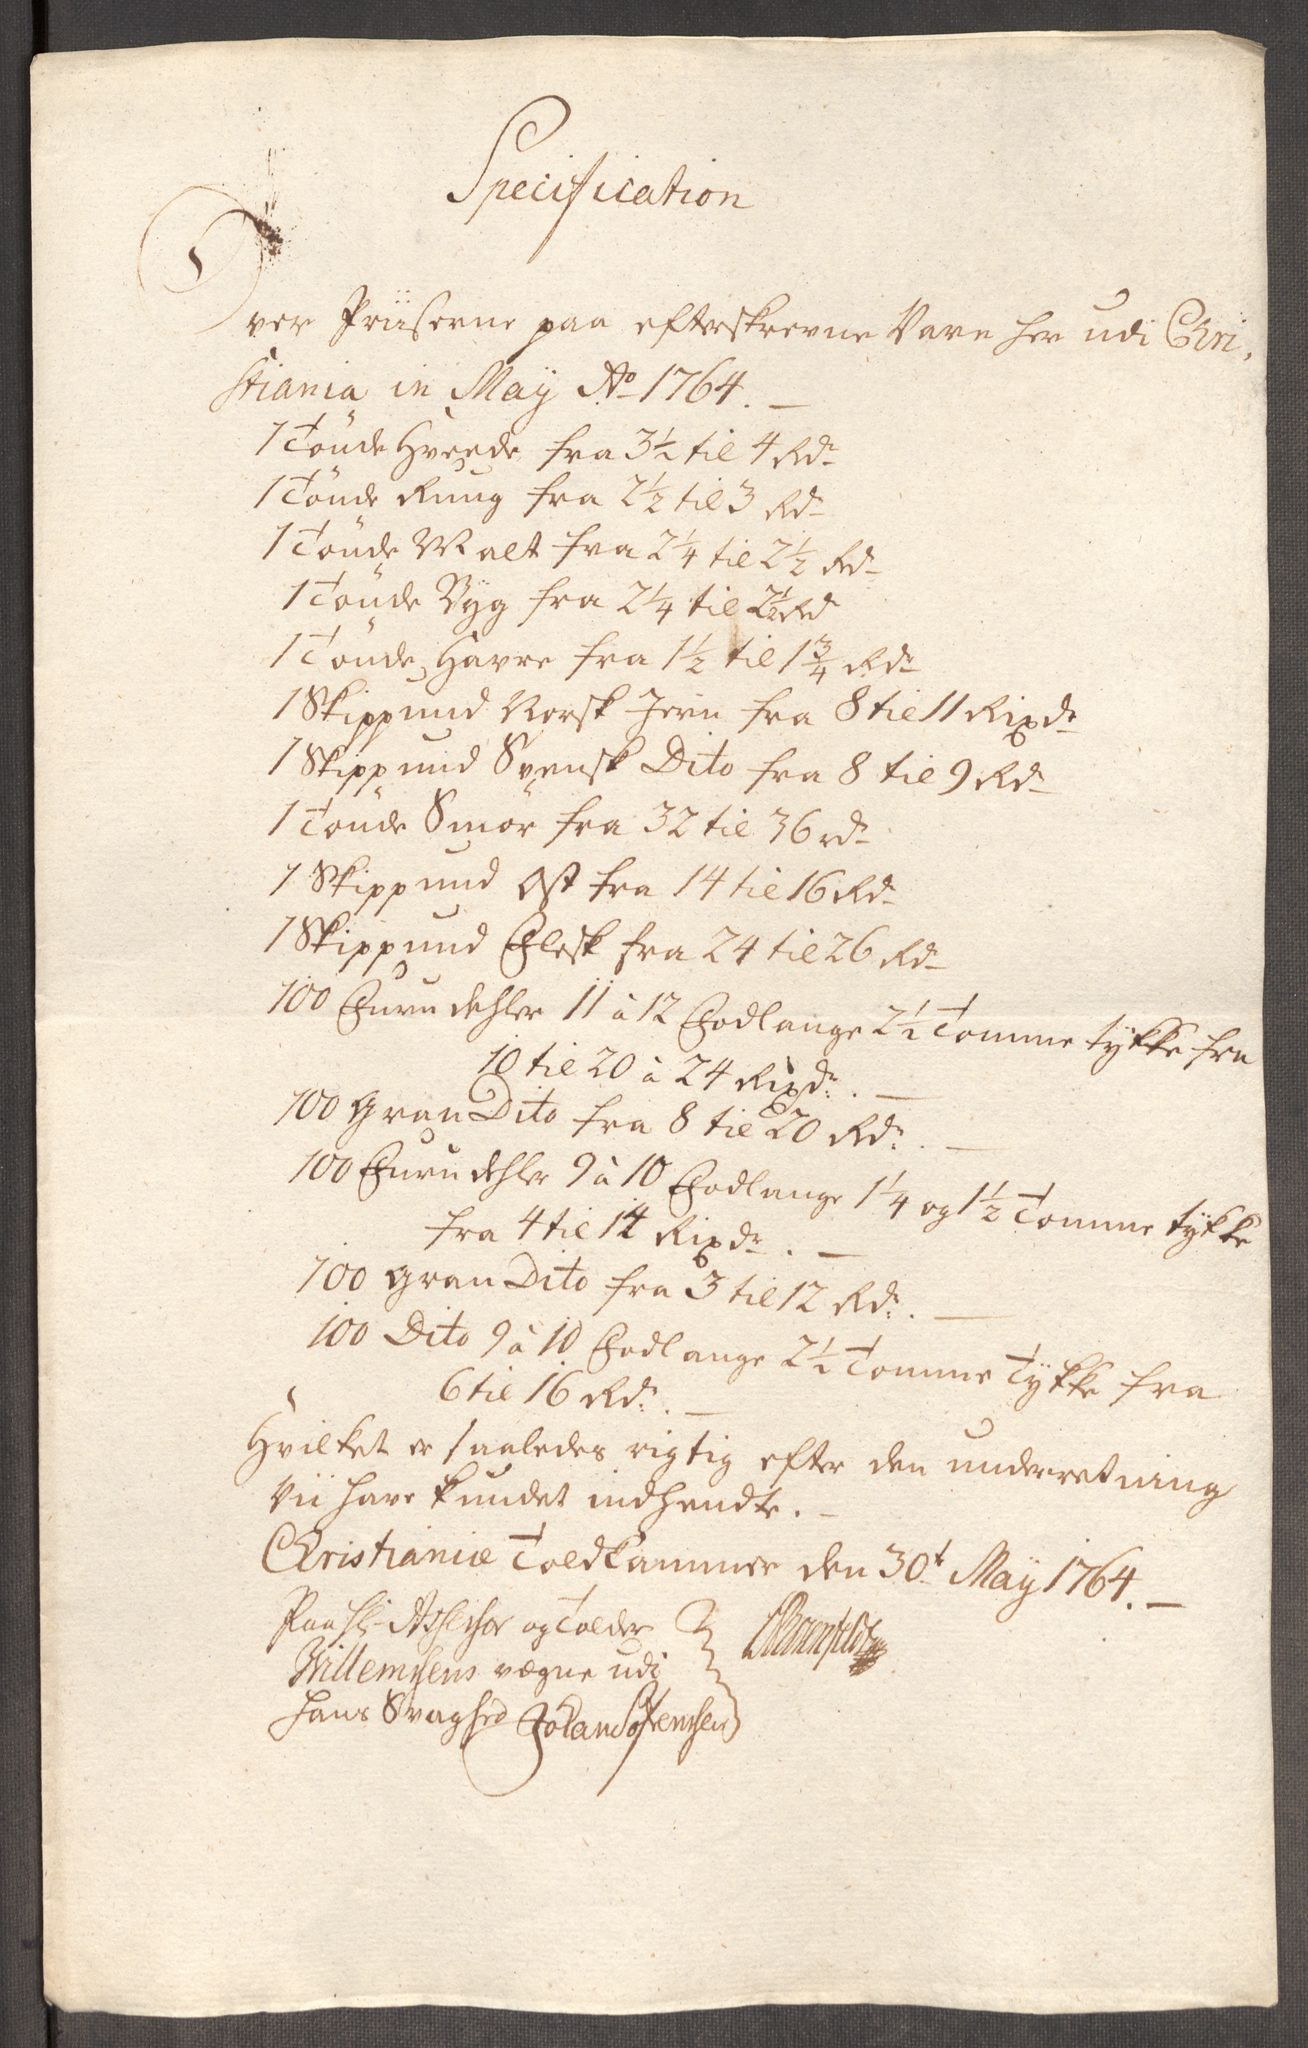 Specification
Over Priiserne paa efterskrevne Vare her udi Chri,
stiania in Maÿ Ao 1764. —
1 Tönde Hveede fra 3½ til 4 Rdr
1 Tönde Rung fra 2½ til 3 Rdr
1 Tönde Malt fra 2¼ til 2½ Rdr
1 Tönde Byg fra 2¼ til 2½ Rd
1 Tönde Havre fra 1½ til 1¾ Rdr
1 Skippund Norsk Jern fra 8 til 11 Rixdr
1 Skippund Svensk Dito fra 8 til 9 Rdr
1 Tönde Smör fra 32 til 36 rdr
1 Skippund Ost fra 14 til 16 Rdr
1 Skippund Flesk fra 24 til 26 Rdr
100 Furu dehler 11 à 12 Fodlange 2½ Tomme tÿkke fra
10 til 20 à 24 Rixdr. —
100 Gran Dito fra 8 til 20 Rdr. —
100 Furu dehler 9 à 10 Fodlange 1¼ og 1½ Tomme tÿkke
fra 4 til 14 Rixdr. —
100 Gran Dito fra 3 til 12 Rdr. —
100 Dito 9 à 10 Fodlange 2½ Tomme Tÿkke fra
6 til 16 Rdr. —
Hvilket er saaledes rigtig efter den underretning
vii have kundet indhendte. —
Christianiæ Toldkammer den 30t Maÿ 1764. —
Paa Hr Assessor og Tolder
Willemsens vegne udi
hans Svaghed